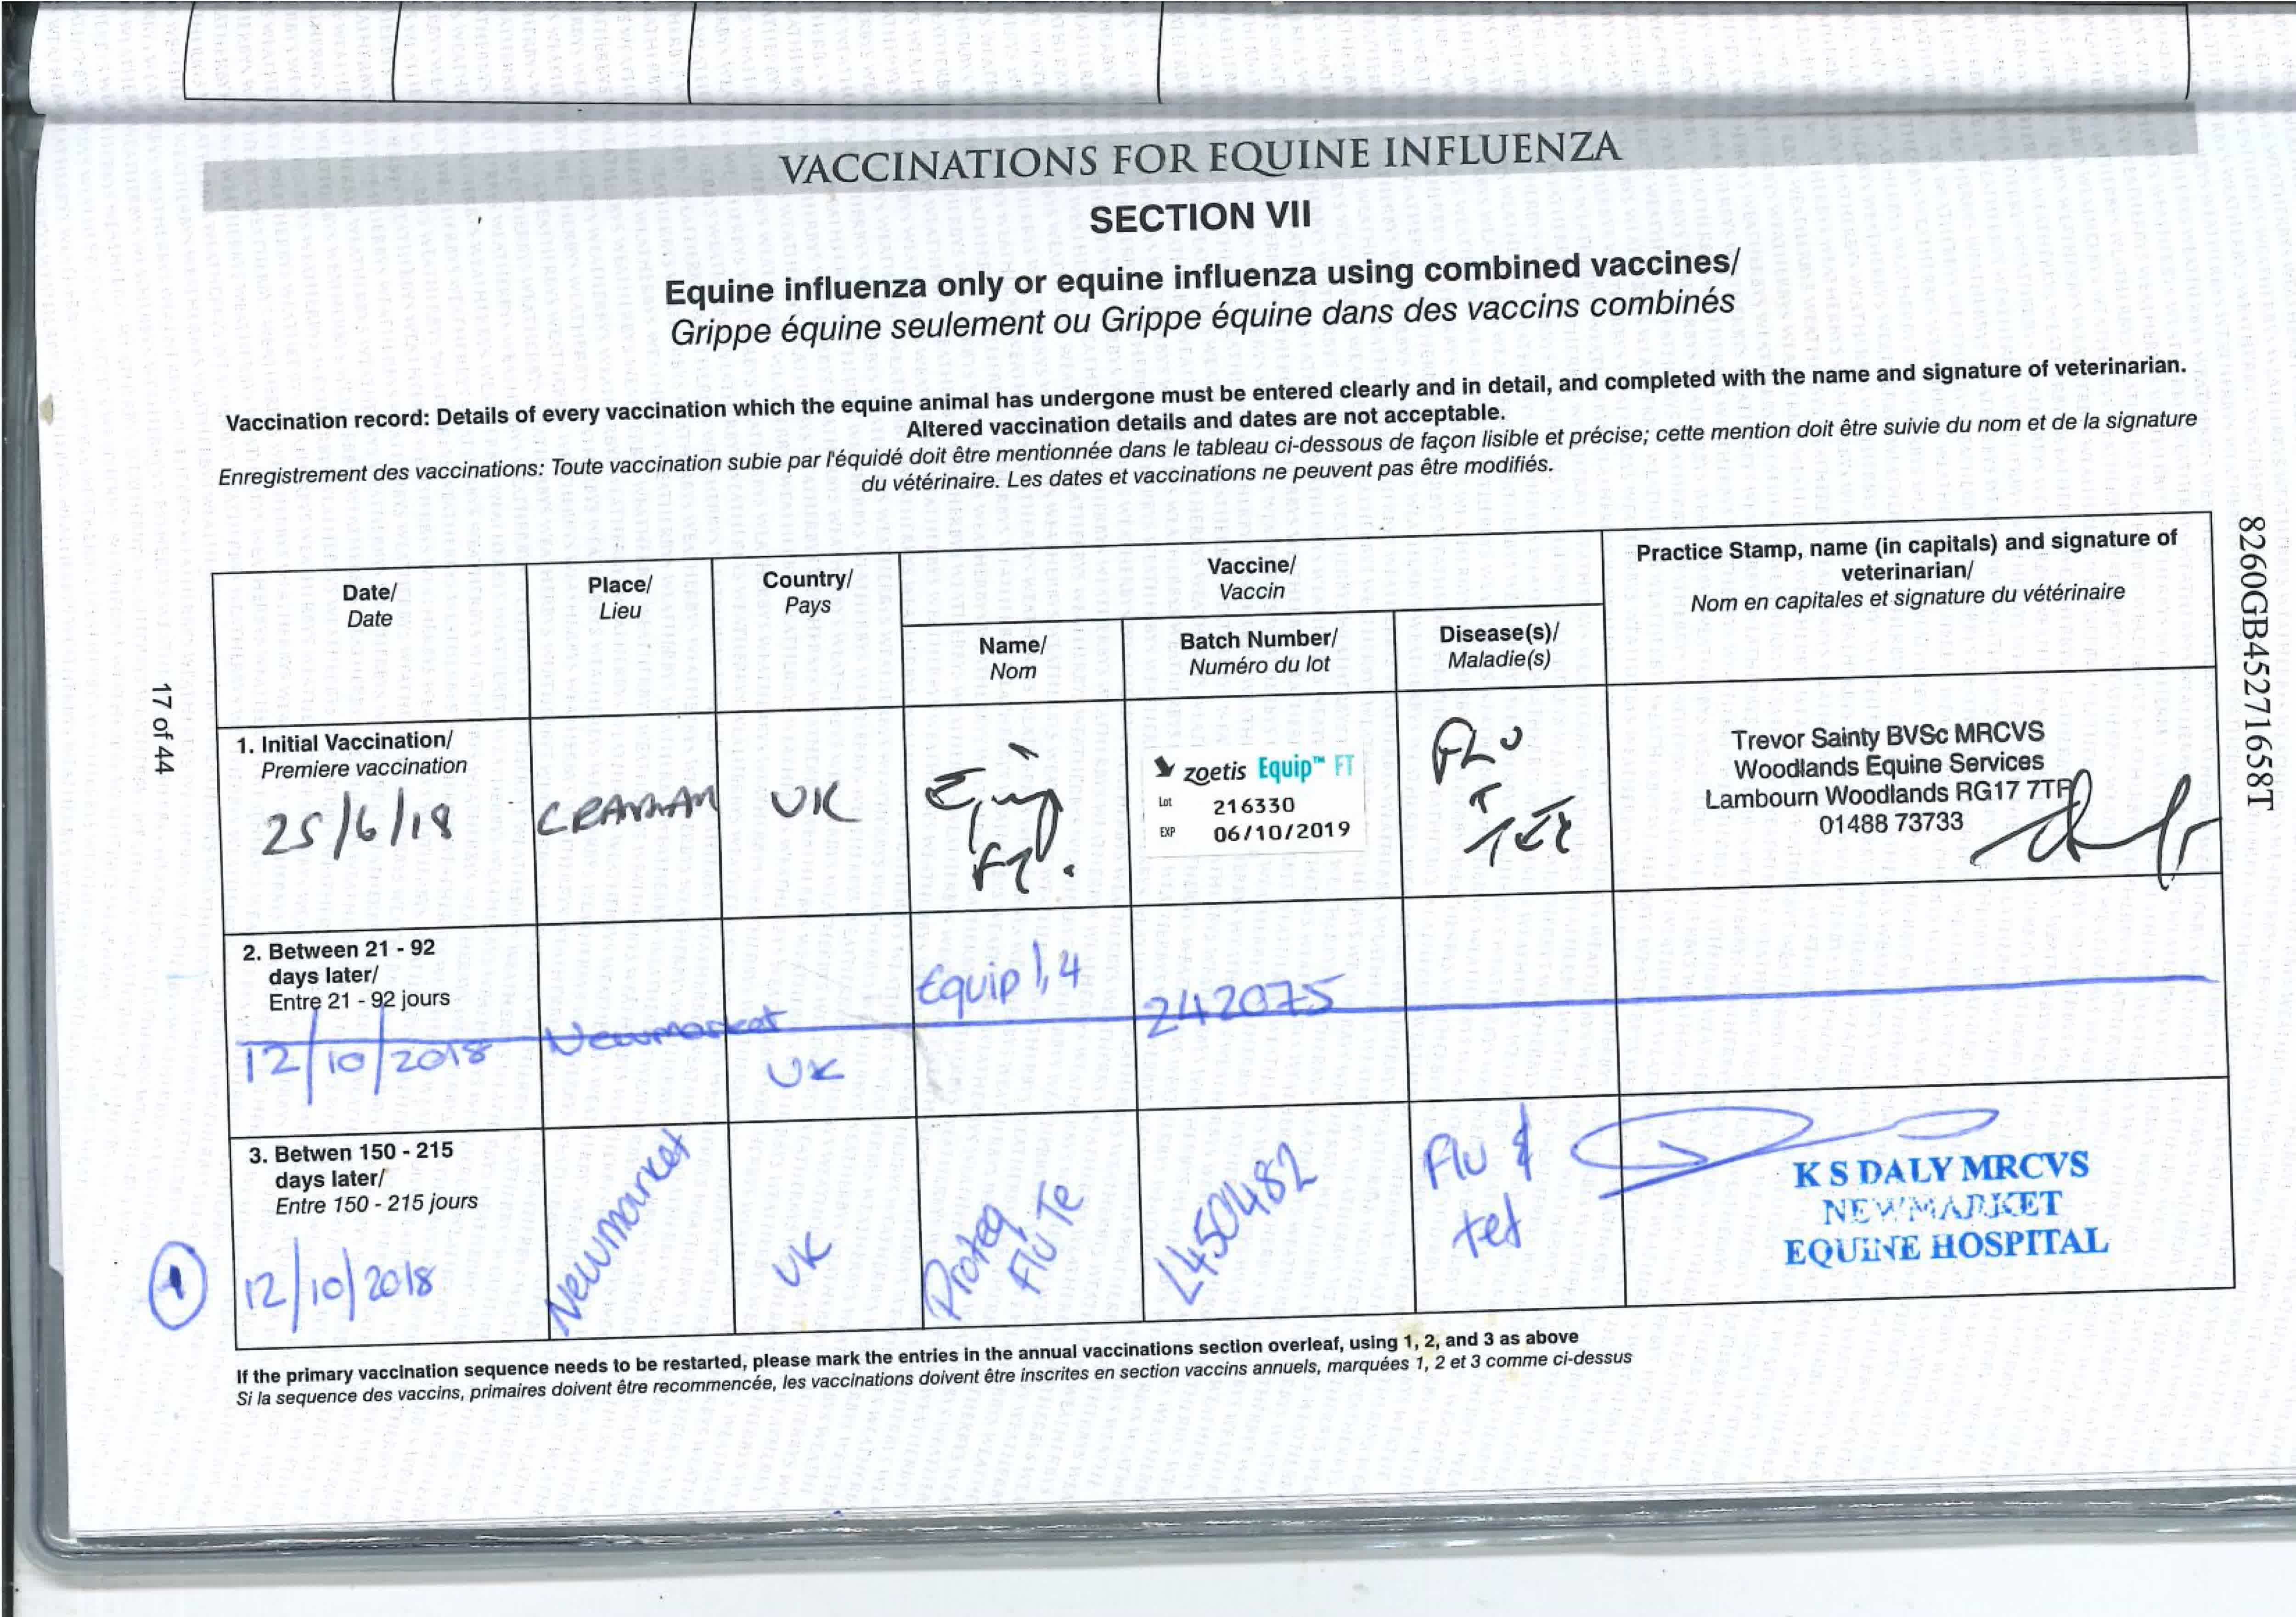 VACCINATIONS FOR EQUINE INFLUENZA
SECTION VII
Equine influenza only or equine influenza using combined vaccines/
Grippe équine seulement ou Grippe équine dans des vaccins combinés
Vaccination record: Details of every vaccination which the equine animal has undergone must be entered clearly and in detail, and completed with the name and signature of veterinarian.
Altered vaccination details and dates are not acceptable.
Enregistrement des vaccinations: Toute vaccination subie par l'équidé doit être mentionnée dans le tableau ci-dessous de façon lisible et précise; cette mention doit être suivie du nom et de la signature
du vétérinaire. Les dates et vaccinations ne peuvent pas être modifiés.
17 of 44
8260GB45271658T
Date/
Date
Place/
Lieu
Country/
Pays
Vaccine/
Vaccin
Name/
Nom
Batch Number/
Numéro du lot
Disease(s)/
Maladie(s)
Practice Stamp, name (in capitals) and signature of
veterinarian/
Nom en capitales et signature du vétérinaire
1. Initial Vaccination/
Premiere vaccination
25/6/18
UK
Equip
FT.
zoetis Equip™ FT
Lot 216330
EXP 06/10/2019
FLU
TET
Trevor Sainty BVSc MRCVS
Woodlands Equine Services
Lambourn Woodlands RG17 7TP
01488 73733
2. Between 21 - 92
days later/
Entre 21 - 92 jours
12/10/2018
Newmarket
UK
Equip 1,4
242075
3. Betwen 150 - 215
days later/
Entre 150 - 215 jours
1
12/10/2018
Newmarket
UK
Proteq
Flu Te
L450482
Flu &
tet
K S DALY MRCVS
NEWMARKET
EQUINE HOSPITAL
If the primary vaccination sequence needs to be restarted, please mark the entries in the annual vaccinations section overleaf, using 1, 2, and 3 as above
Si la sequence des vaccins, primaires doivent être recommencée, les vaccinations doivent être inscrites en section vaccins annuels, marquées 1, 2 et 3 comme ci-dessus